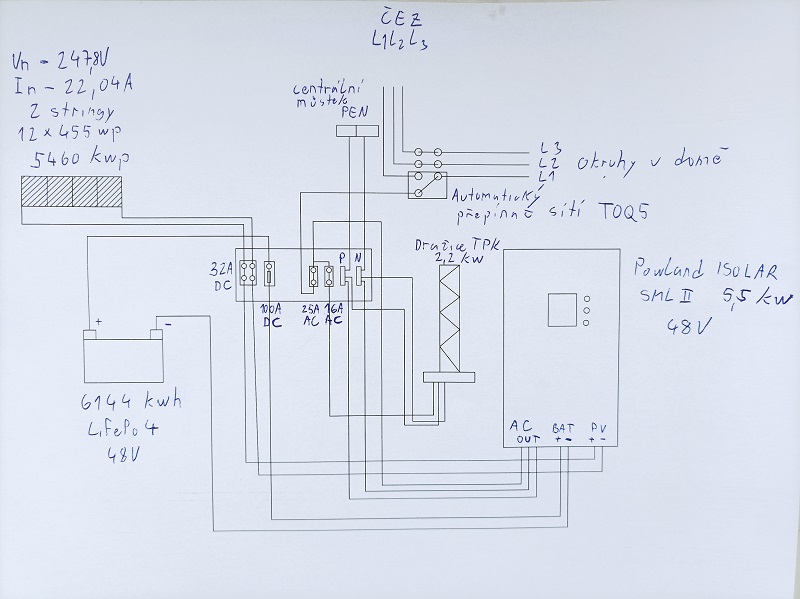 ČEZ
L1L2L3
Vn - 247,8V
In - 22,04A
2 stringy
12 x 455 wp
5460 kwp
centrální
můstek
PEN
L3
L2
L1
okruhy v domě
Automatický
přepínač sítí TOQ5
Dražice TPK
2,2 kw
P N
32A
DC
100A
DC
25A
AC
16A
AC
Powland ISOLAR
SML II 5,5 kw
48V
+ -
6144 kwh
LifePo4
48V
AC
OUT
BAT
+ -
PV
+ -